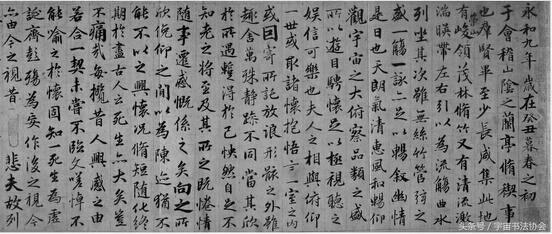 永和九年歲在癸丑暮春之初
于會稽山陰之蘭亭脩禊事
也羣賢畢至少長咸集此地
有崇山峻領茂林脩竹又有清流激
湍暎帶左右引以為流觴曲水
列坐其次雖無絲竹管弦之
盛一觴一詠亦足以暢敘幽情
是日也天朗氣清惠風和暢仰
觀宇宙之大俯察品類之盛
所以遊目騁懷足以極視聽之
娛信可樂也夫人之相與俯仰
一世或取諸懷抱悟言一室之内
或因寄所託放浪形骸之外雖
趣舍萬殊靜躁不同當其欣
於所遇蹔得於己怏然自足不
知老之將至及其所之既惓情
隨事遷感慨係之矣向之所
欣俛仰之間以為陳迹猶不
能不以之興懷況脩短隨化終
期於盡古人云死生亦大矣豈
不痛哉每攬昔人興感之由
若合一契未嘗不臨文嗟悼不
能喻之於懷固知一死生為虛
誕齊彭殤為妄作後之視今
亦由今之視昔 悲夫故列
头条号/宇宙书法协会